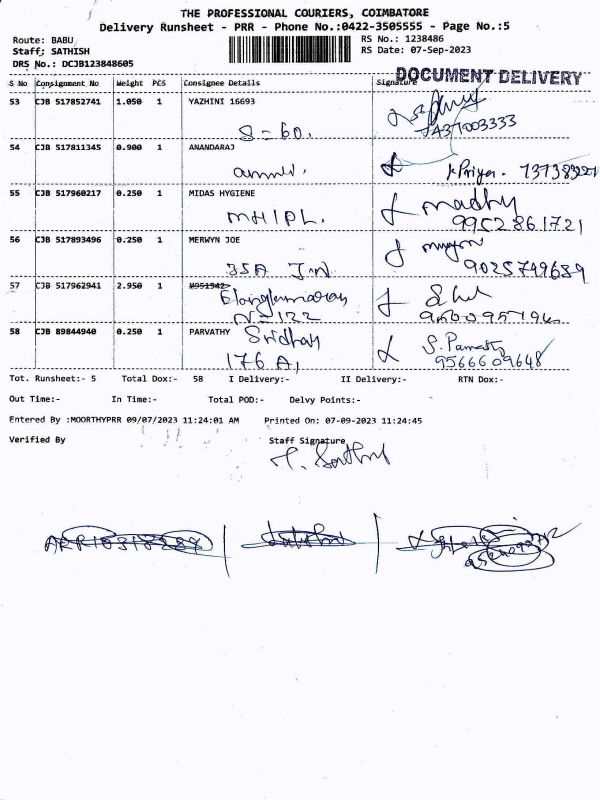 THE PROFESSIONAL COURIERS, COIMBATORE
Delivery Runsheet - PRR - Phone No.:0422-3505555 - Page No.:5
Route: BABU RS No.: 1238486
Staff: SATHISH RS Date: 07-Sep-2023
DRS No.: DCJB123848605
DOCUMENT DELIVERY
S No Consignment No Weight PCS Consignee Details Signature
53 CJB 517852741 1.050 1 YAZHINI 16693
S-60.
54 CJB 517811345 0.900 1 ANANDARAJ
K Priya.
55 CJB 517960217 0.250 1 MIDAS HYGIENE
MHIPL. madhu
9952861721
56 CJB 517893496 0.250 1 MERWYN JOE
35A 9025749689
57 CJB 517962941 2.950 1 M951342
N-122
58 CJB 89844940 0.250 1 PARVATHY Sridhar
176 A, 9566609648
Tot. Runsheet:- 5 Total Dox:- 58 I Delivery:- II Delivery:- RTN Dox:-
Out Time:- In Time:- Total POD:- Delvy Points:-
Entered By :MOORTHYPRR 09/07/2023 11:24:01 AM Printed On: 07-09-2023 11:24:45
Verified By Staff Signature